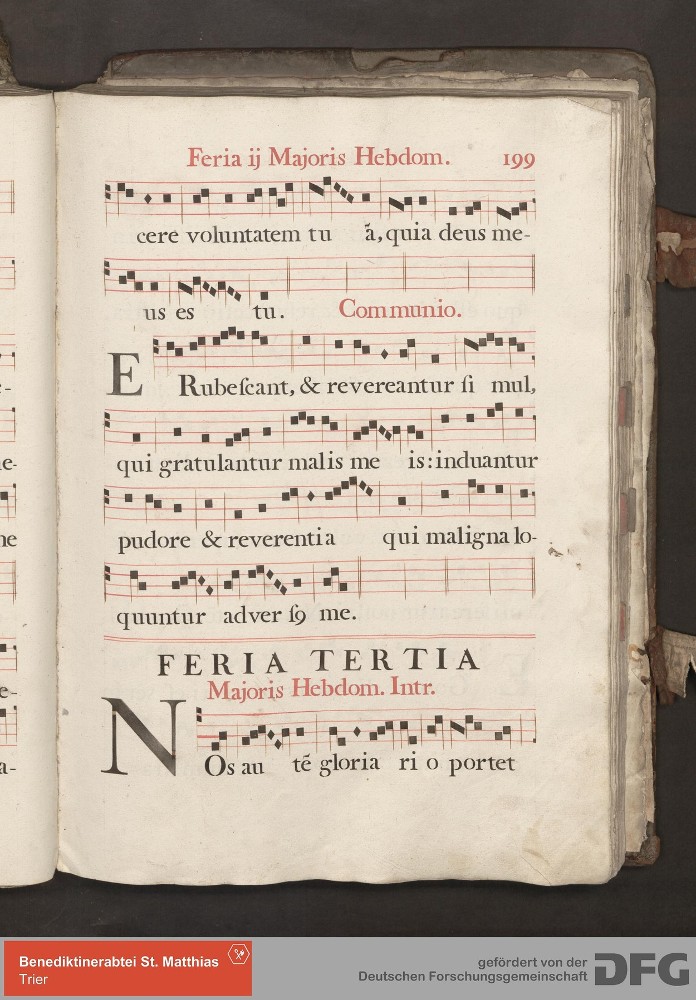 Feria ij Majoris Hebdom. 199
cere voluntatem tu ã, quia deus me-
us es tu. Communio.
ERubeſcant, & revereantur ſi mul,
qui gratulantur malis me is: induantur
pudore & reverentia qui maligna lo-
quuntur adver ſꝯ me.
FERIA TERTIA
Majoris Hebdom. Intr.
NOs au tẽ gloria ri o portet
e-
ne
e-
a-
Benediktinerabtei St. Matthias
Trier
gefördert von der
Deutschen Forschungsgemeinschaft
DFG